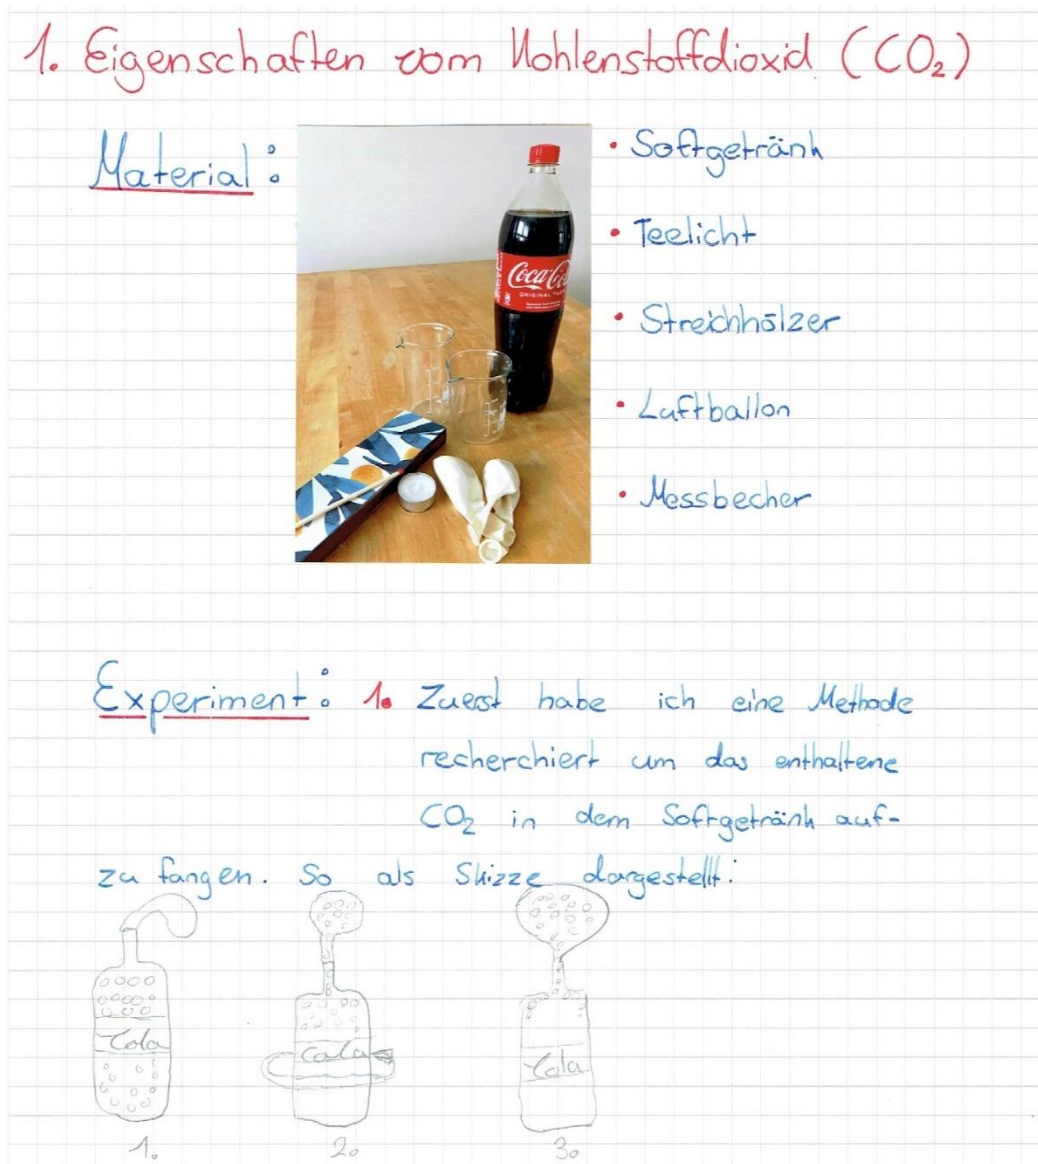 1. Eigenschaften vom Kohlenstoffdioxid (CO₂)
Material:
• Softgetränk
• Teelicht
• Streichhölzer
• Luftballon
• Messbecher
Coca-Co
ORIGINAL
Experiment: 1. Zuerst habe ich eine Methode
recherchiert um das enthaltene
CO₂ in dem Softgetränk auf-
zu fangen. So als Skizze dargestellt:
Cola
Cola
Cola
1. 2. 3.